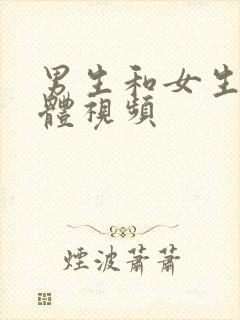 男生和女生
體視頻
煙波蕭蕭